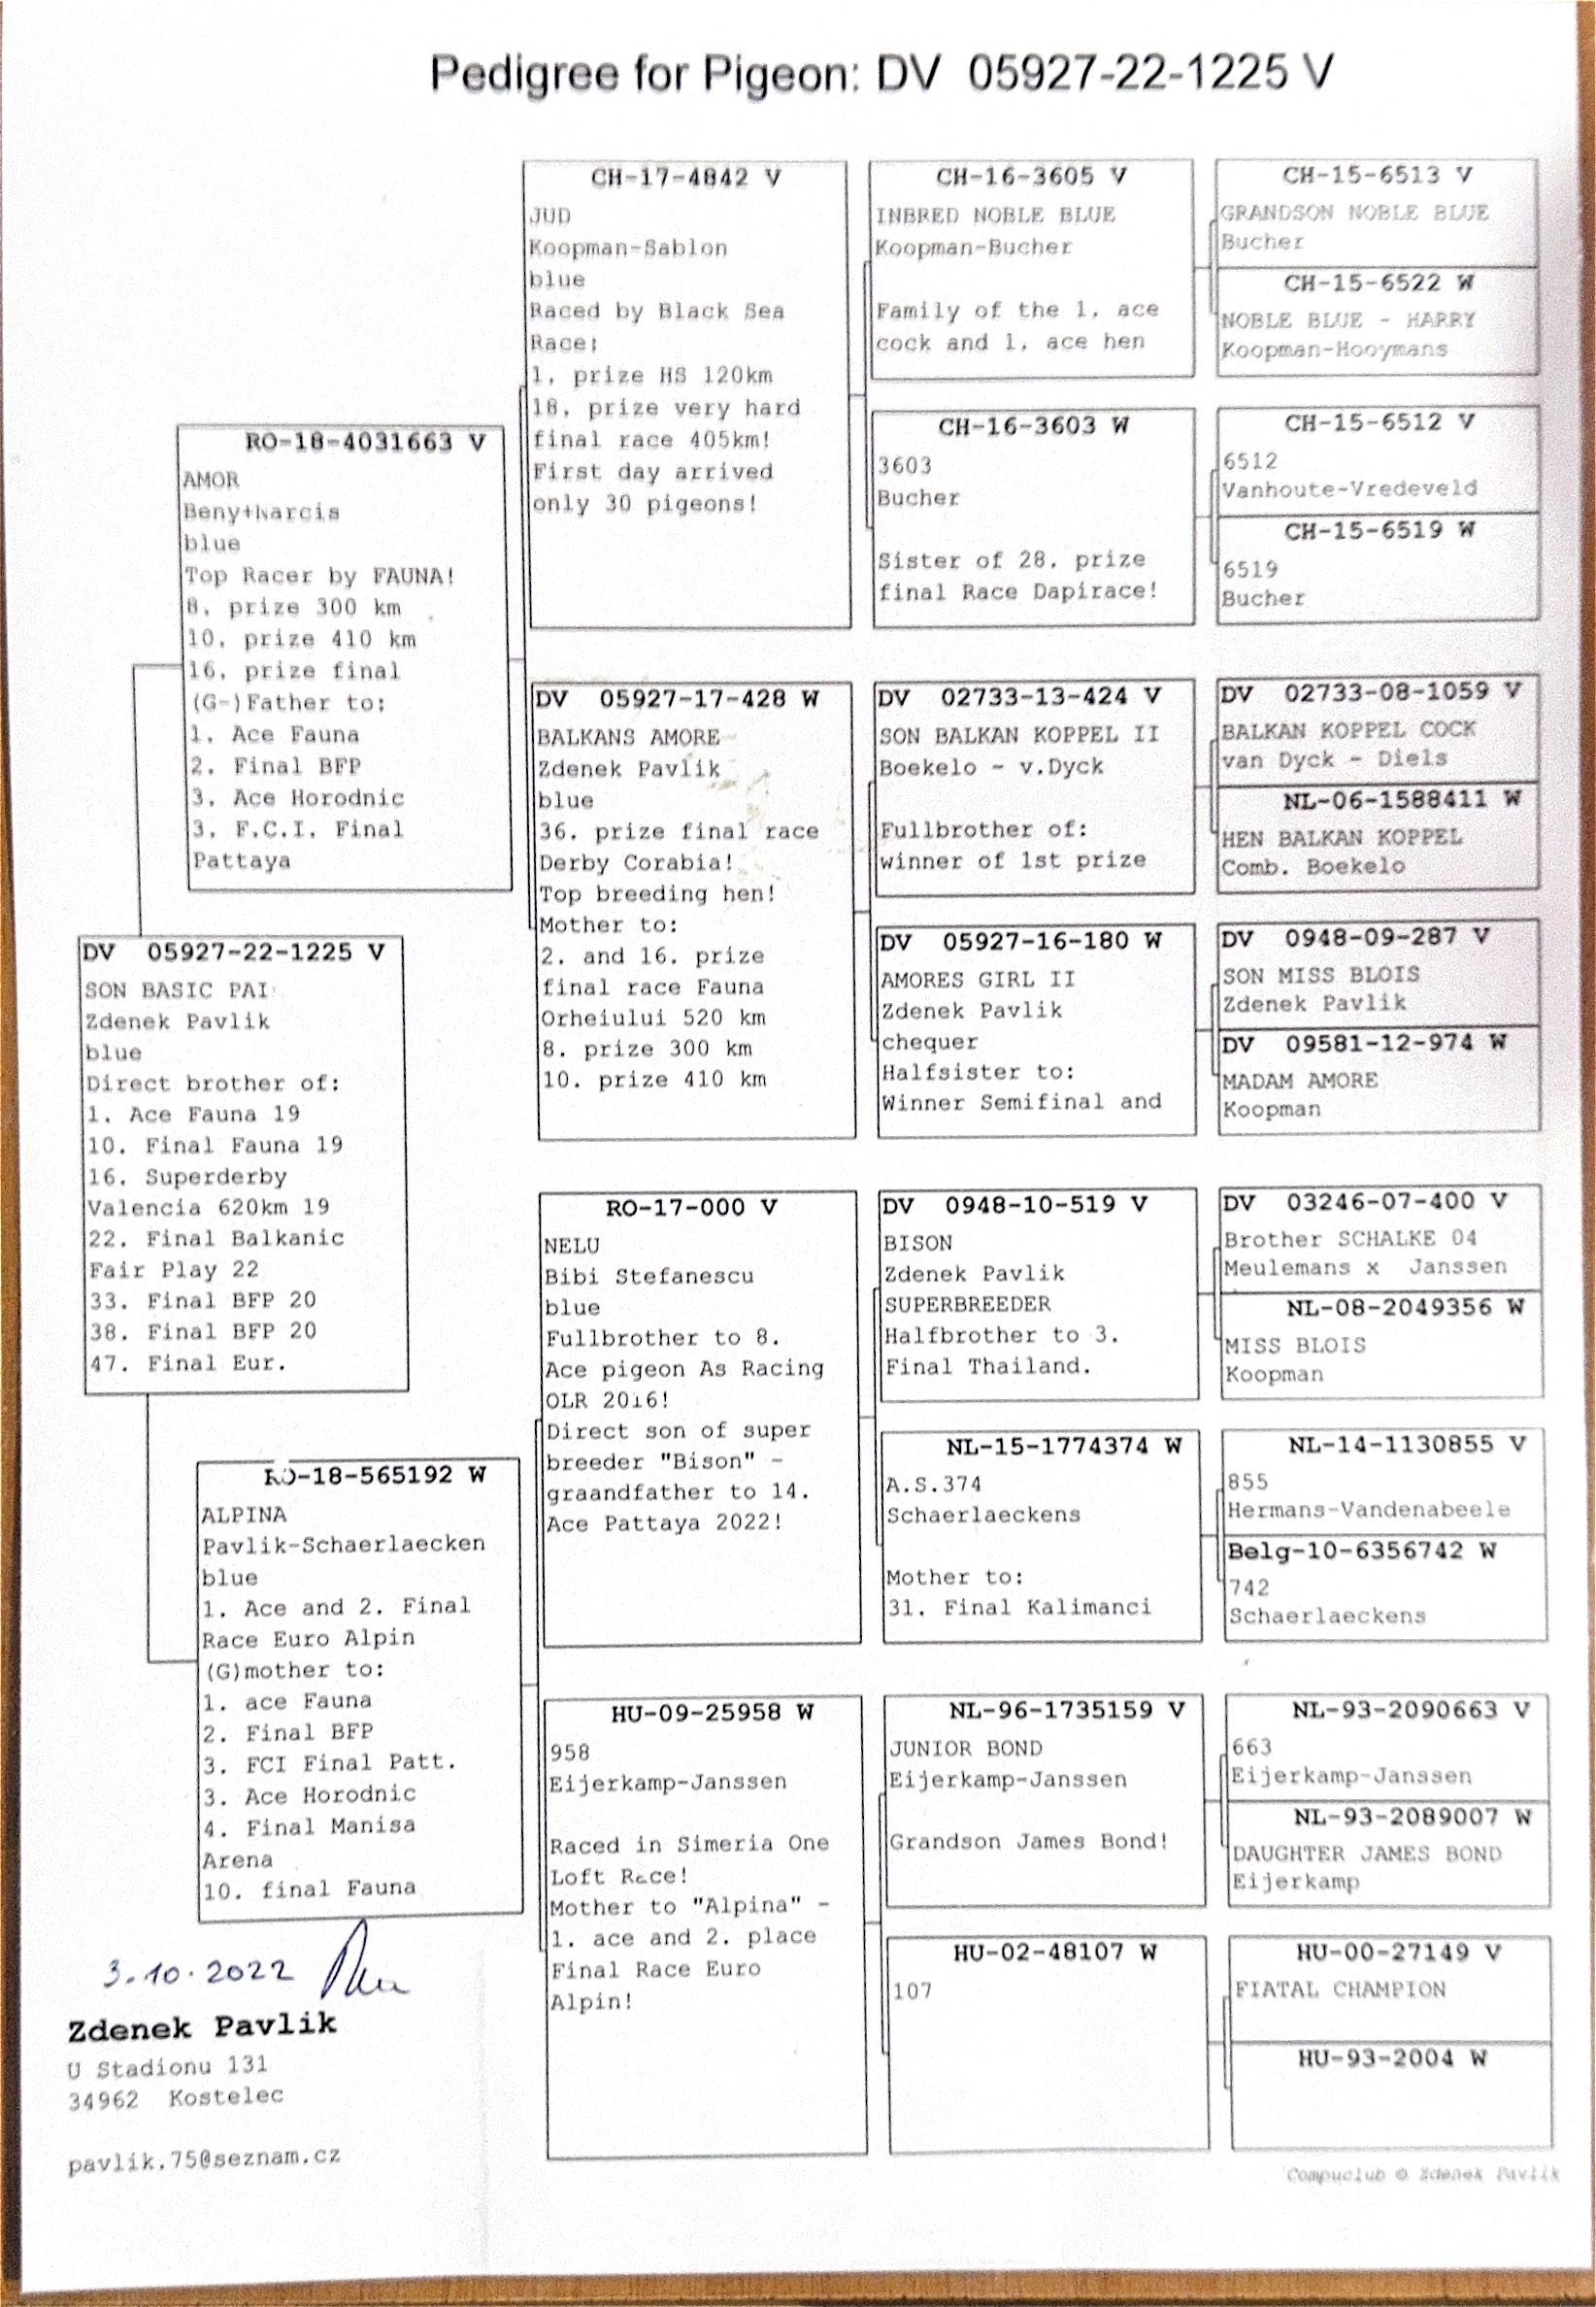 Pedigree for Pigeon: DV 05927-22-1225 V
DV 05927-22-1225 V
SON BASIC PAI
Zdenek Pavlik
blue
Direct brother of:
1. Ace Fauna 19
10. Final Fauna 19
16. Superderby
Valencia 620km 19
22. Final Balkanic
Fair Play 22
33. Final BFP 20
38. Final BFP 20
47. Final Eur.
RO-18-4031663 V
AMOR
Beny+Narcis
blue
Top Racer by FAUNA!
8. prize 300 km
10. prize 410 km
16. prize final
(G-)Father to:
1. Ace Fauna
2. Final BFP
3. Ace Horodnic
3. F.C.I. Final
Pattaya
RO-18-565192 W
ALPINA
Pavlik-Schaerlaecken
blue
1. Ace and 2. Final
Race Euro Alpin
(G)mother to:
1. ace Fauna
2. Final BFP
3. FCI Final Patt.
3. Ace Horodnic
4. Final Manisa
Arena
10. final Fauna
CH-17-4842 V
JUD
Koopman-Sablon
blue
Raced by Black Sea
Race:
1. prize HS 120km
18. prize very hard
final race 405km!
First day arrived
only 30 pigeons!
DV 05927-17-428 W
BALKANS AMORE
Zdenek Pavlik
blue
36. prize final race
Derby Corabia!
Top breeding hen!
Mother to:
2. and 16. prize
final race Fauna
Orheiului 520 km
8. prize 300 km
10. prize 410 km
RO-17-000 V
NELU
Bibi Stefanescu
blue
Fullbrother to 8.
Ace pigeon As Racing
OLR 2016!
Direct son of super
breeder "Bison" -
graandfather to 14.
Ace Pattaya 2022!
HU-09-25958 W
958
Eijerkamp-Janssen
Raced in Simeria One
Loft Race!
Mother to "Alpina" -
1. ace and 2. place
Final Race Euro
Alpin!
CH-16-3605 V
INBRED NOBLE BLUE
Koopman-Bucher
Family of the 1. ace
cock and 1. ace hen
CH-16-3603 W
3603
Bucher
Sister of 28. prize
final Race Dapirace!
DV 02733-13-424 V
SON BALKAN KOPPEL II
Boekelo - v.Dyck
Fullbrother of:
winner of 1st prize
DV 05927-16-180 W
AMORES GIRL II
Zdenek Pavlik
chequer
Halfsister to:
Winner Semifinal and
DV 0948-10-519 V
BISON
Zdenek Pavlik
SUPERBREEDER
Halfbrother to 3.
Final Thailand.
NL-15-1774374 W
A.S.374
Schaerlaeckens
Mother to:
31. Final Kalimanci
NL-96-1735159 V
JUNIOR BOND
Eijerkamp-Janssen
Grandson James Bond!
HU-02-48107 W
107
CH-15-6513 V
GRANDSON NOBLE BLUE
Bucher
CH-15-6522 W
NOBLE BLUE - HARRY
Koopman-Hooymans
CH-15-6512 V
6512
Vanhoute-Vredeveld
CH-15-6519 W
6519
Bucher
DV 02733-08-1059 V
BALKAN KOPPEL COCK
van Dyck - Diels
NL-06-1588411 W
HEN BALKAN KOPPEL
Comb. Boekelo
DV 0948-09-287 V
SON MISS BLOIS
Zdenek Pavlik
DV 09581-12-974 W
MADAM AMORE
Koopman
DV 03246-07-400 V
Brother SCHALKE 04
Meulemans x Janssen
NL-08-2049356 W
MISS BLOIS
Koopman
NL-14-1130855 V
855
Hermans-Vandenabeele
Belg-10-6356742 W
742
Schaerlaeckens
NL-93-2090663 V
663
Eijerkamp-Janssen
NL-93-2089007 W
DAUGHTER JAMES BOND
Eijerkamp
HU-00-27149 V
FIATAL CHAMPION
HU-93-2004 W
3.10.2022
Zdenek Pavlik
U Stadionu 131
34962 Kostelec
pavlik.75@seznam.cz
Compuclub © Zdenek Pavlik